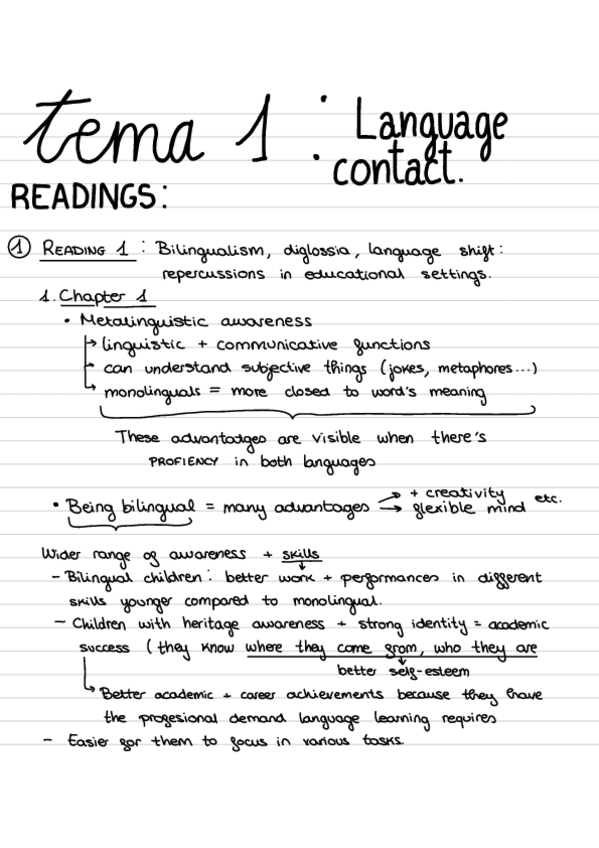 tema 1 : Language
contact.
READINGS:
① READING 1 : Bilingualism, diglossia, language shift:
repercussions in educational settings.
1. Chapter 1
• Metalinguistic awareness
→ linguistic + communicative functions
→ can understand subjective things (jokes, metaphores...)
→ monolinguals = more closed to word's meaning
These advantadges are visible when there's
PROFIENCY in both languages
• Being bilingual = many advantages → + creativity etc.
→ flexible mind
Wider range of awareness + skills
- Bilingual children: better work + performances in different
skills younger compared to monolingual.
- Children with heritage awareness + strong identity = academic
success (they know where they come from, who they are
better self-esteem
→ Better academic + career achievements because they have
the profesional demand language learning requires
- Easier for them to focus in various tasks.